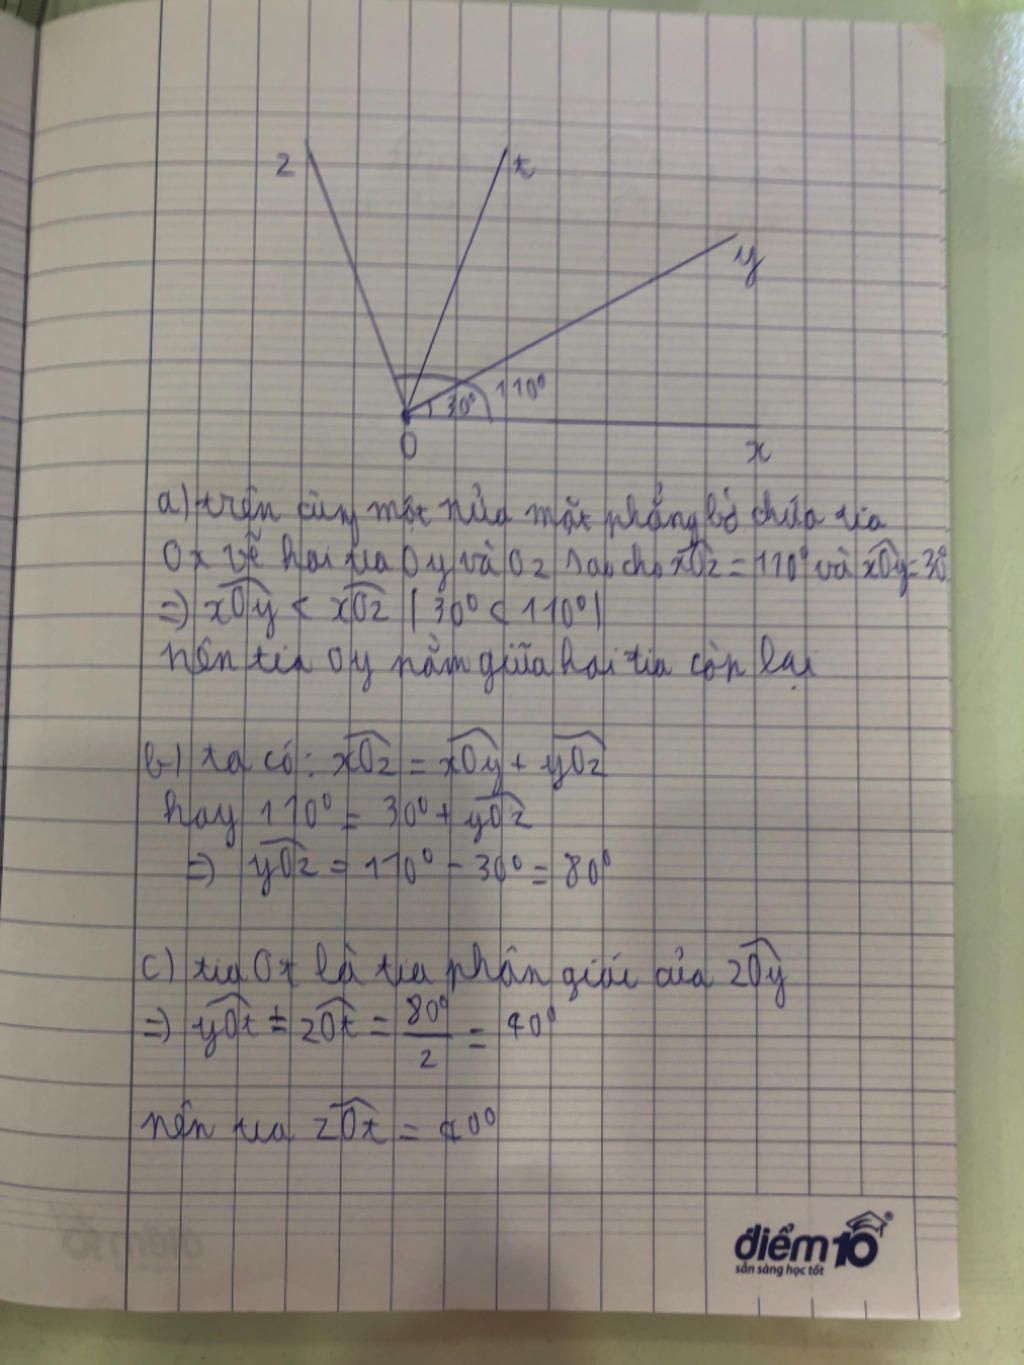 z
t
y
110°
30°
O
x
a) trên cùng một nửa mặt phẳng bờ chứa tia
Ox vẽ hai tia Oy và Oz sao cho xOz = 110° và xOy = 30°
=> xOy < xOz (30° < 110°)
nên tia Oy nằm giữa hai tia còn lại
b) ta có: xOz = xOy + yOz
hay 110° = 30° + yOz
=> yOz = 110° - 30° = 80°
c) tia Ot là tia phân giác của zOy
=> yOt = zOt = 80°/2 = 40°
nên tia zOt = 40°
điểm10®
sẵn sàng học tốt